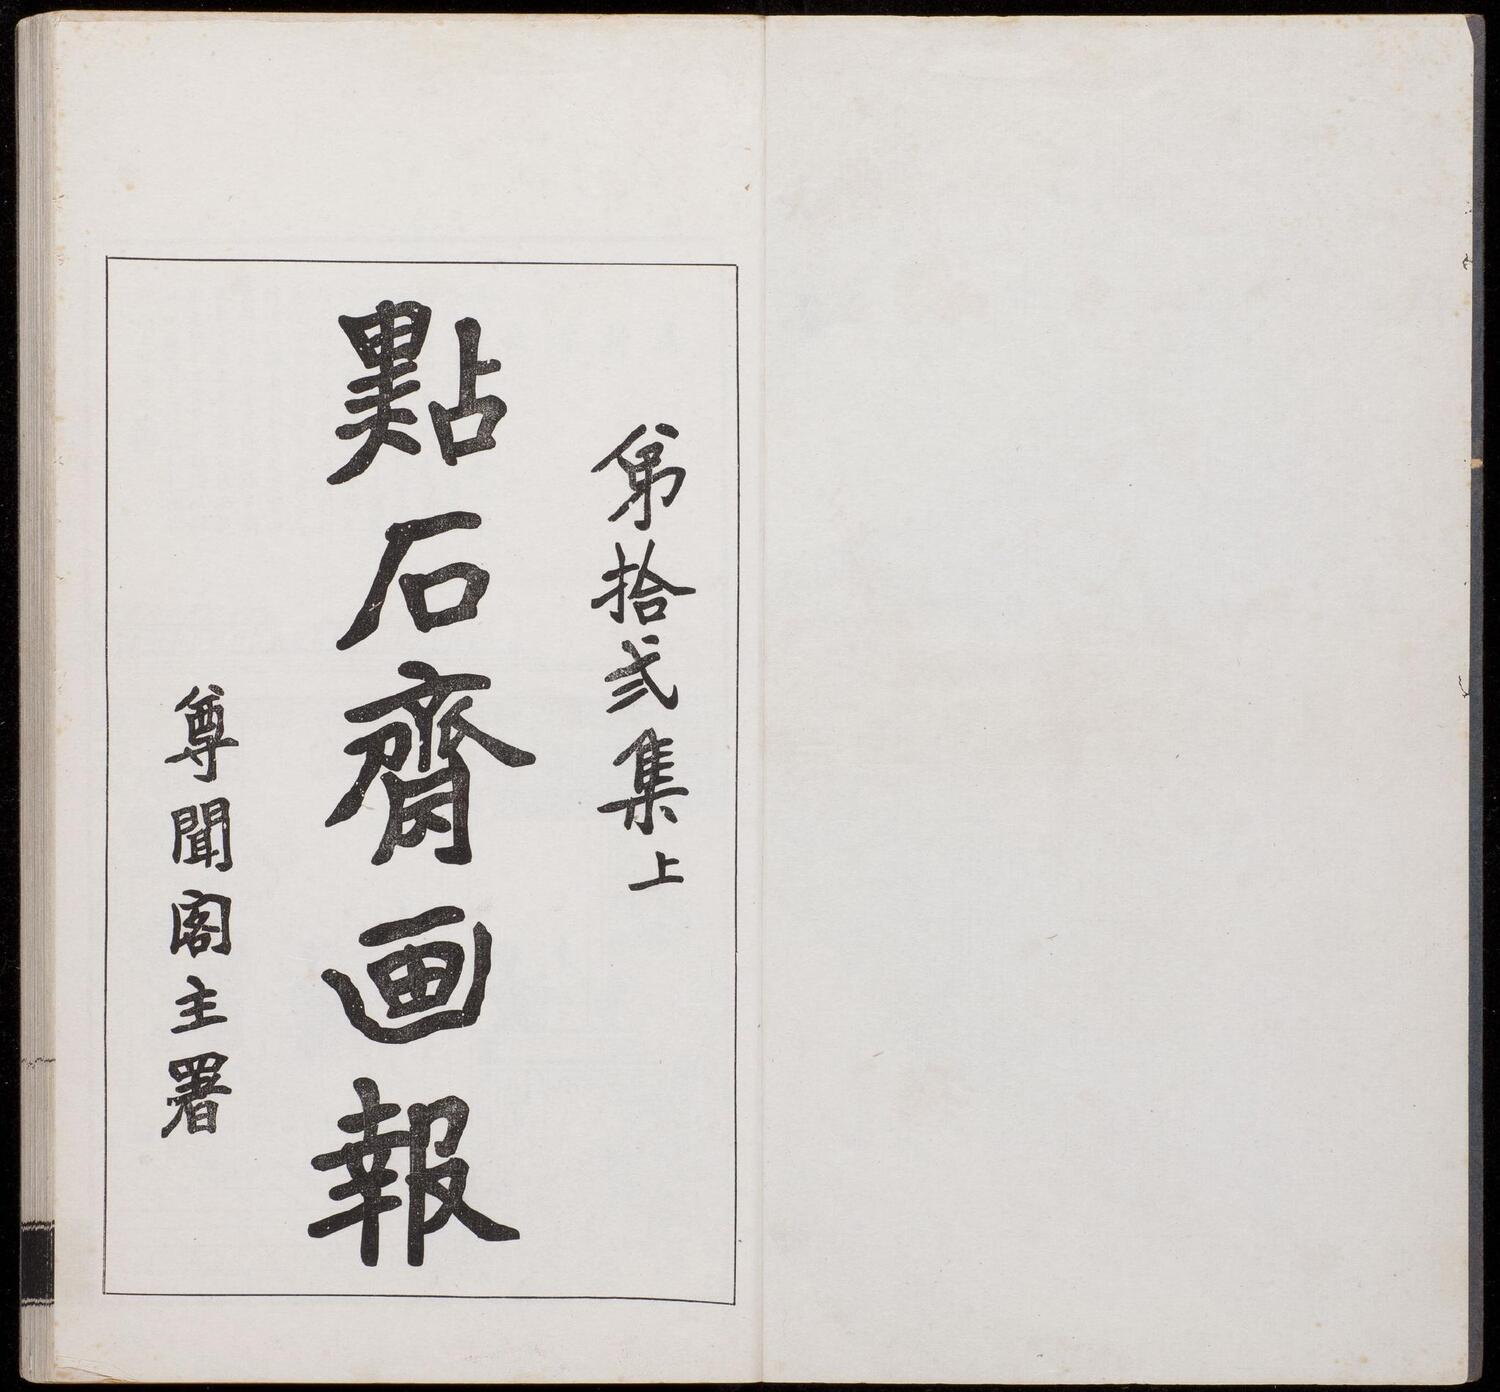 第拾弍集上
點石齋画報
尊聞閣主署